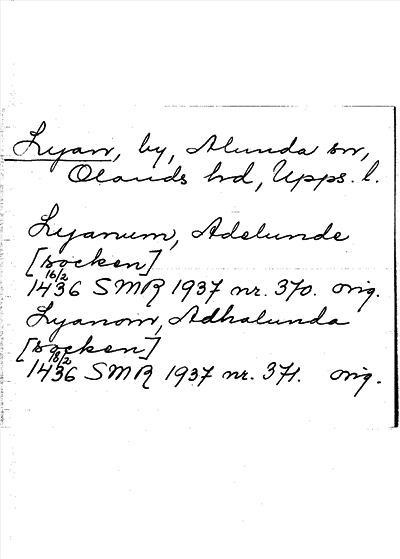 Lyan, by, Alunda sn,
Olands hd, Upps. l.
Lyanum, Adelunde
[socken]
16/2
1436 SMR 1937 nr. 370. orig.
Lyanom, Adhalunda
[socken]
16/2
1436 SMR 1937 nr. 371. orig.